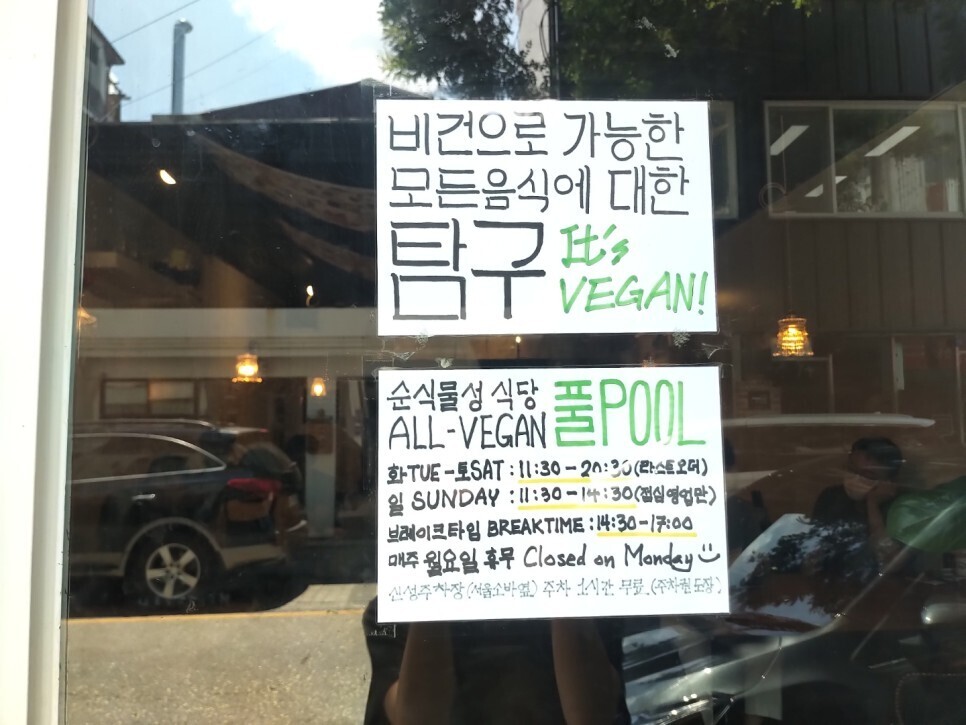 비건으로 가능한
모든음식에 대한
탐구 It's VEGAN!
순식물성 식당
ALL-VEGAN 풀POOL
화TUE-토SAT : 11:30-20:30(라스트오더)
일 SUNDAY : 11:30-14:30(점심영업만)
브레이크타임 BREAKTIME : 14:30-17:00
매주 월요일 휴무 Closed on Monday
신성주차장(서울소바옆) 주차 1시간 무료 (주차권도장)